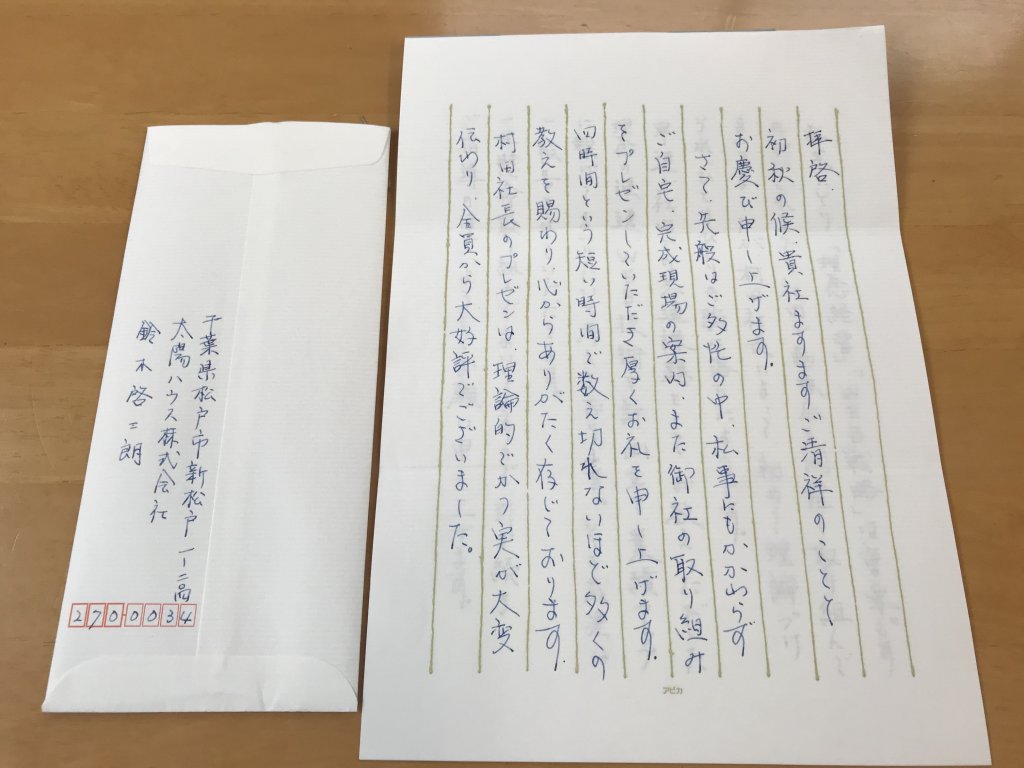 拝啓、
初秋の候、貴社ますますご清祥のことと
お慶び申し上げます。
さて、先般はご多忙の中、私事にもかかわらず
ご自宅、完成現場の案内、また御社の取り組み
をプレゼンしていただき厚くお礼を申し上げます。
四時間という短い時間で数え切れないほど多くの
教えを賜わり、心からありがたく存じております。
村田社長のプレゼンは、理論的でかつ実が大変
伝わり、全員から大好評でございました。
アピカ
千葉県松戸市新松戸一ー二高
太陽ハウス株式会社
鈴木啓三朗
2700034